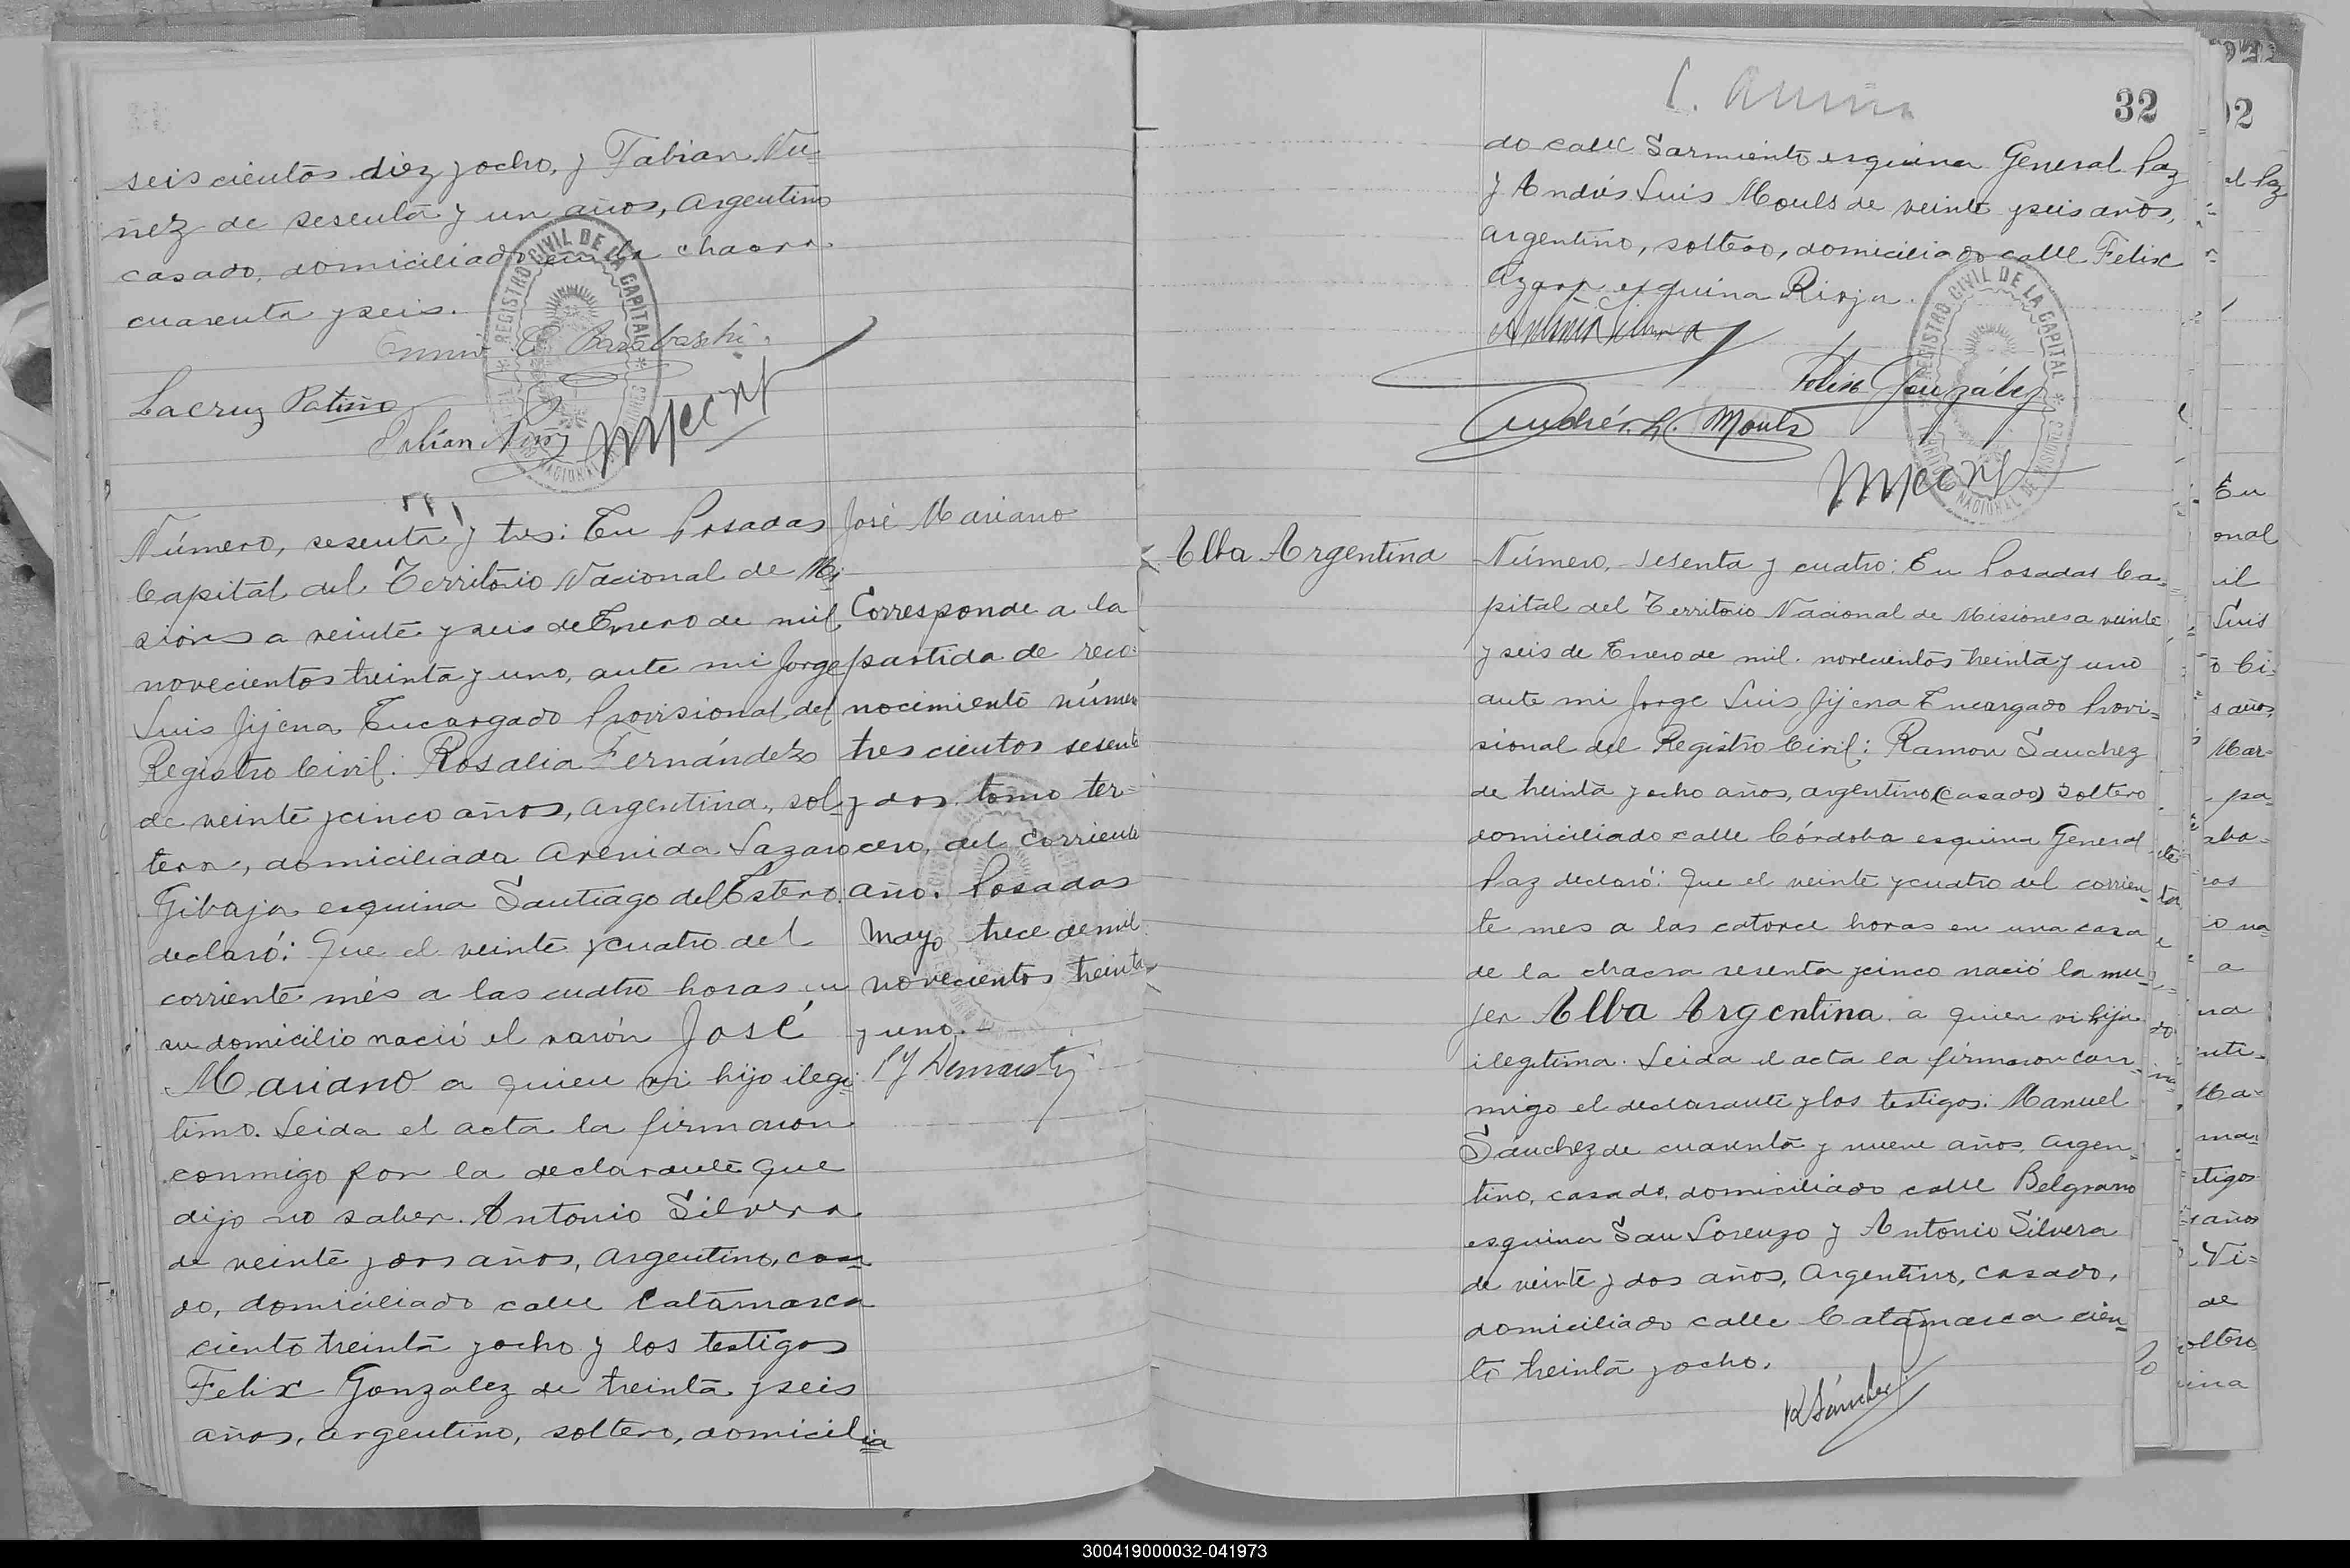 seiscientos diez y ocho, y Fabian Nu=
ñez de sesenta y un años, argentino
casado, domiciliado en la chacra
cuarenta y seis.
Lacruz Patiño
Fabian Nuñez
Número, sesenta y tres: En Posadas
Capital del Territorio Nacional de Mi-
siones a veinte y seis de Enero de mil
novecientos treinta y uno, ante mi Jorge
Luis Jijena Encargado Provisional del
Registro Civil: Rosalia Fernández
de veinte y cinco años, argentina, sol-
tera, domiciliada Avenida Lazaro
Gibaja esquina Santiago del Estero.
declaró: Que el veinte y cuatro del
corriente més a las cuatro horas en
su domicilio nació el varón José
Mariano a quien vi hijo ilegi-
timo. Leida el acta la firmaron
conmigo por la declarante que
dijo no saber. Antonio Silvera
de veinte y dos años, argentino, casa=
do, domiciliado calle Catamarca
ciento treinta y ocho y los testigos
Felix Gonzalez de treinta y seis
años, argentino, soltero, domicilia=
José Mariano
Corresponde a la
partida de reco-
nocimiento número
trescientos sesenta
y dos tomo ter=
cero, del corriente
año. Posadas
Mayo trece de mil
novecientos treinta
y uno.-
32
do calle Sarmiento esquina General Paz
y Andrés Luis Mouls de veinte y seis años,
argentino, soltero, domiciliado calle Felix
Azara esquina Rioja.
Antonio Silvera
Felix González
Andrés L. Mouls
REGISTRO CIVIL DE LA CAPITAL
Alba Argentina
Número, sesenta y cuatro: En Posadas Ca=
pital del Territorio Nacional de Misiones a veinte
y seis de Enero de mil novecientos treinta y uno
ante mi Jorge Luis Jijena Encargado Provi=
sional del Registro Civil: Ramon Sanchez
de treinta y ocho años, argentino (casado) soltero
domiciliado calle Córdoba esquina General
Paz declaró: Que el veinte y cuatro del corrien-
te mes a las catorce horas en una casa
de la chacra sesenta y cinco nació la mu-
jer Alba Argentina a quien vi hija
ilegitima. Leida el acta la firmaron con-
migo el declarante y los testigos: Manuel
Sánchez de cuarenta y nueve años, argen-
tino, casado, domiciliado calle Belgrano
esquina San Lorenzo y Antonio Silvera
de veinte y dos años, argentino, casado,
domiciliado calle Catamarca cien-
to treinta y ocho.
R Sánchez
300419000032-041973